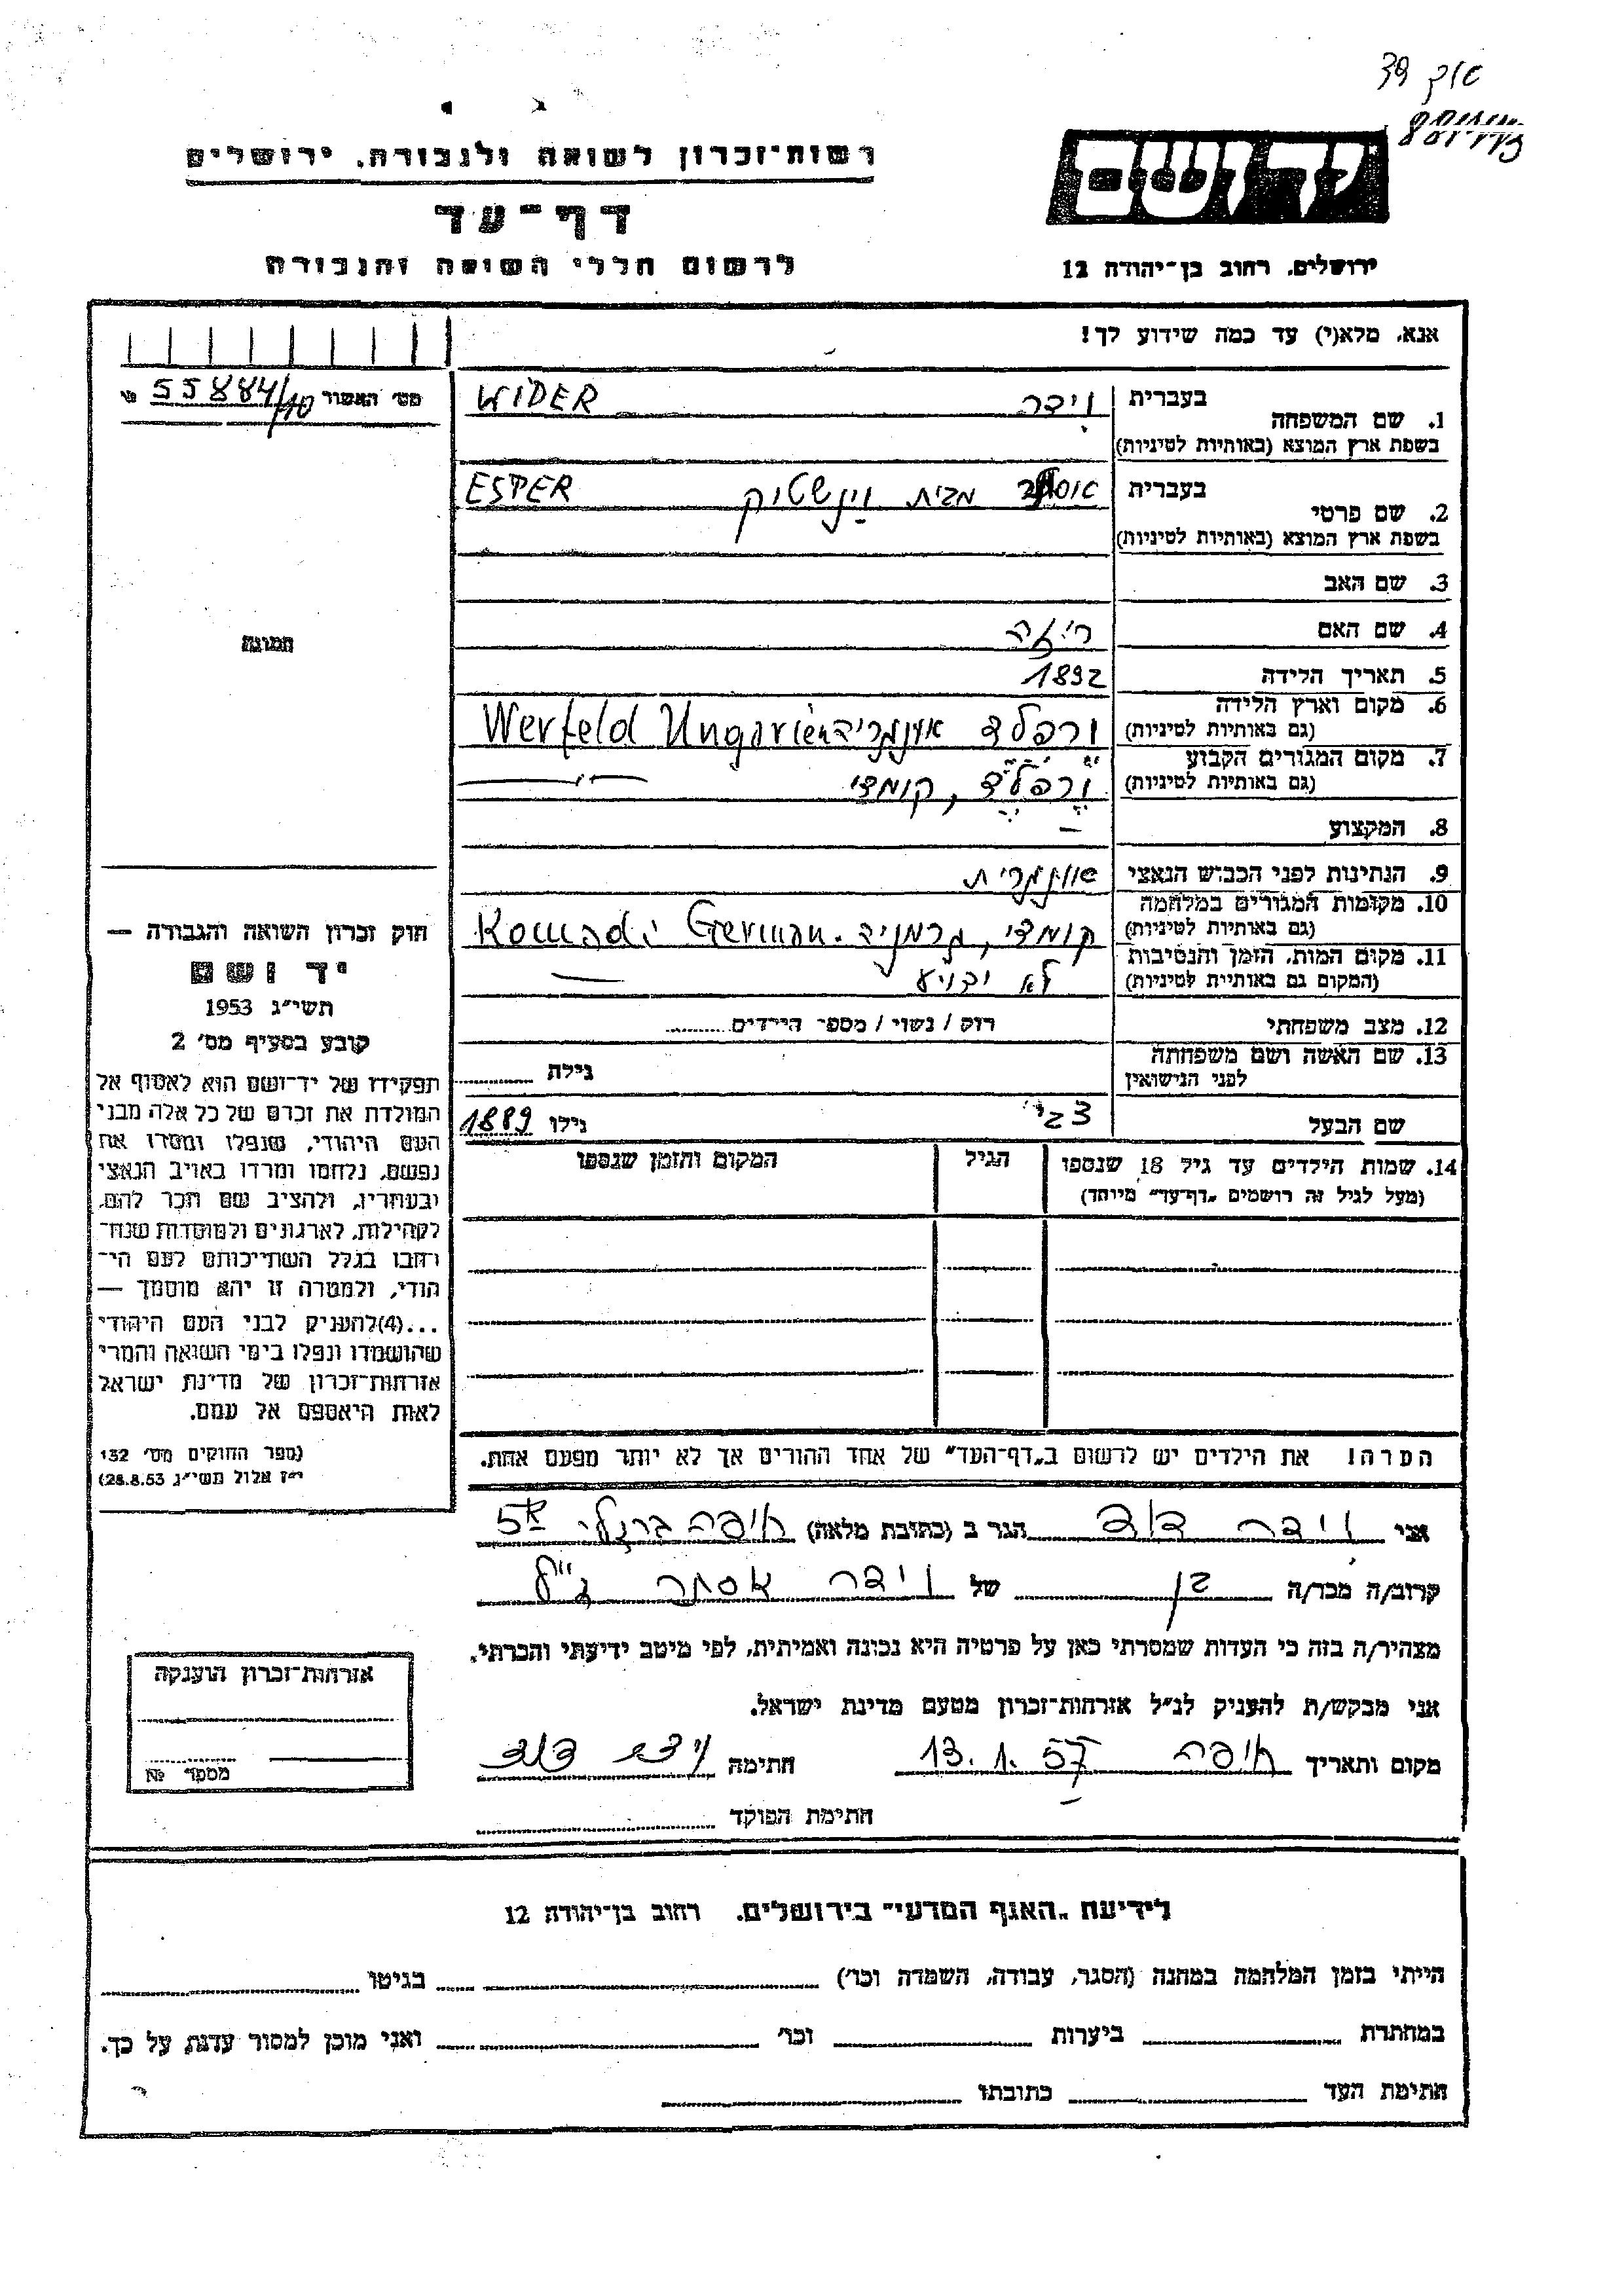 39
רשות־זכרון לשואה ולגבורה, ירושלים
דף־עד
לרשום חללי השואה והגבורה
יד ושם
ירושלים, רחוב בן־יהודה 12
אנא, מלא(י) עד כמה שידוע לך!
מס׳ האשור 55884/10
1. שם המשפחה
בעברית וידר WIDER
בשפת ארץ המוצא (באותיות לטיניות)
2. שם פרטי
בעברית מבית ESTER
בשפת ארץ המוצא (באותיות לטיניות)
3. שם האב
4. שם האם
תמונה
5. תאריך הלידה 1892
6. מקום וארץ הלידה
(גם באותיות לטיניות) ורפלד Werfeld Ungarien
7. מקום המגורים הקבוע
(גם באותיות לטיניות) ורפלד, קומדי
8. המקצוע —
9. הנתינות לפני הכבוש הנאצי
10. מקומות המגורים במלחמה
(גם באותיות לטיניות) קומדי, גרמניה. Komadi German
11. מקום המות, הזמן והנסיבות
(המקום גם באותיות לטיניות) לא ידוע
12. מצב משפחתי רוק / נשוי / מספר הילדים
13. שם האשה ושם משפחתה
לפני הנישואין גילה
שם הבעל צבי גילו 1889
14. שמות הילדים עד גיל 18 שנספו הגיל המקום והזמן שנספו
(מעל לגיל זה רושמים „דף־עד" מיוחד)
הערה! את הילדים יש לרשום ב„דף־העד" של אחד ההורים אך לא יותר מפעם אחת.
חוק זכרון השואה והגבורה —
יד ושם
תשי״ג 1953
קובע בסעיף מס׳ 2
תפקידו של יד־ושם הוא לאסוף אל
המולדת את זכרם של כל אלה מבני
העם היהודי, שנפלו ומסרו את
נפשם, נלחמו ומרדו באויב הנאצי
ובעוזריו, ולהציב שם וזכר להם,
לקהילות, לארגונים ולמוסדות שנח־
רבו בגלל השתייכותם לעם הי־
הודי, ולמטרה זו יהא מוסמך —
...(4)להעניק לבני העם היהודי
שהושמדו ונפלו בימי השואה והמרי
אזרחות־זכרון של מדינת ישראל
לאות היאספם אל עמם.
(ספר החוקים מס׳ 132
י״ז אלול תשי״ג 28.8.53)
אני וידר דוד הגר ב (כתובת מלאה) חיפה
קרוב/ה מכר/ה בן של וידר אסתר ז״ל
מצהיר/ה בזה כי העדות שמסרתי כאן על פרטיה היא נכונה ואמיתית, לפי מיטב ידיעתי והכרתי.
אני מבקש/ת להעניק לנ״ל אזרחות־זכרון מטעם מדינת ישראל.
מקום ותאריך חיפה 13.1.57 חתימה וידר דוד
חתימת הפוקד
אזרחות־זכרון הוענקה
מספר №
לידיעת „האגף המדעי" בירושלים, רחוב בן־יהודה 12
הייתי בזמן המלחמה במחנה (הסגר, עבודה, השמדה וכו׳) בגיטו
במחתרת ביערות וכו׳ ואני מוכן למסור עדות על כך.
חתימת העד כתובתו